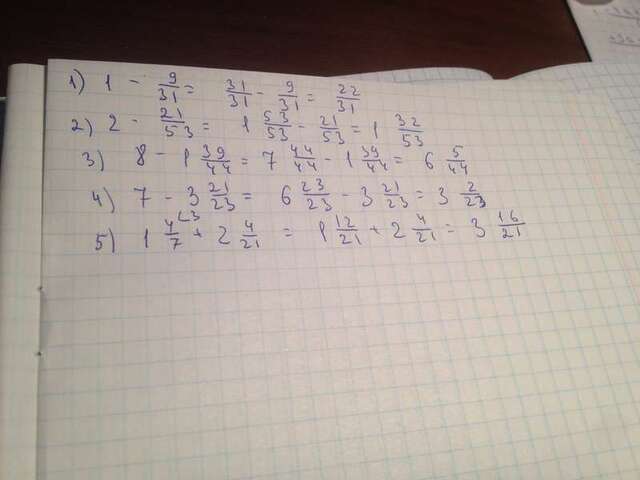 1) 1 - 9/31 = 31/31 - 9/31 = 22/31
2) 2 - 21/53 = 1 53/53 - 21/53 = 1 32/53
3) 8 - 1 39/44 = 7 44/44 - 1 39/44 = 6 5/44
4) 7 - 3 21/23 = 6 23/23 - 3 21/23 = 3 2/23
5) 1 4/7 (3 + 2 4/21 = 1 12/21 + 2 4/21 = 3 16/21